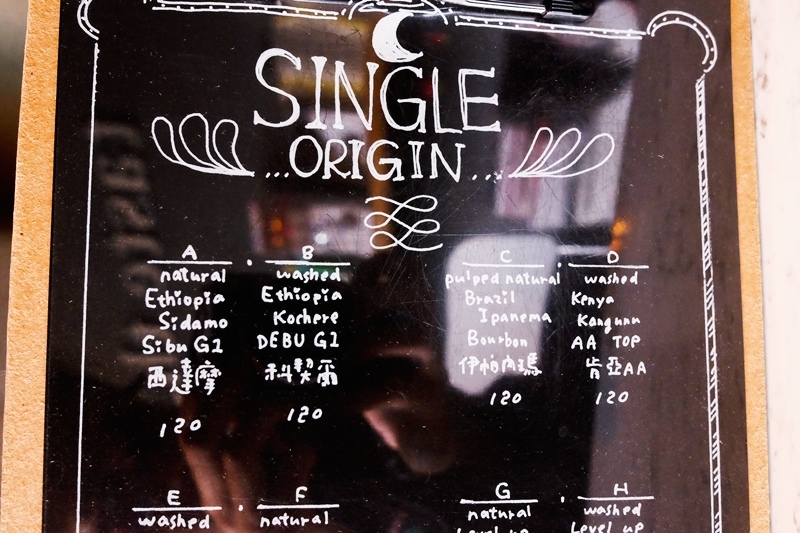 SINGLE
...ORIGIN...
A
natural
Ethiopia
Sidamo
Sibu G1
西達摩
120
B
washed
Ethiopia
Kochere
DEBU G1
科契爾
120
C
pulped natural
Brazil
Ipanema
Bourbon
伊帕內瑪
120
D
washed
Kenya
Kangunu
AA TOP
肯亞AA
120
E
washed
F
natural
G
natural
Level up
H
washed
Level up